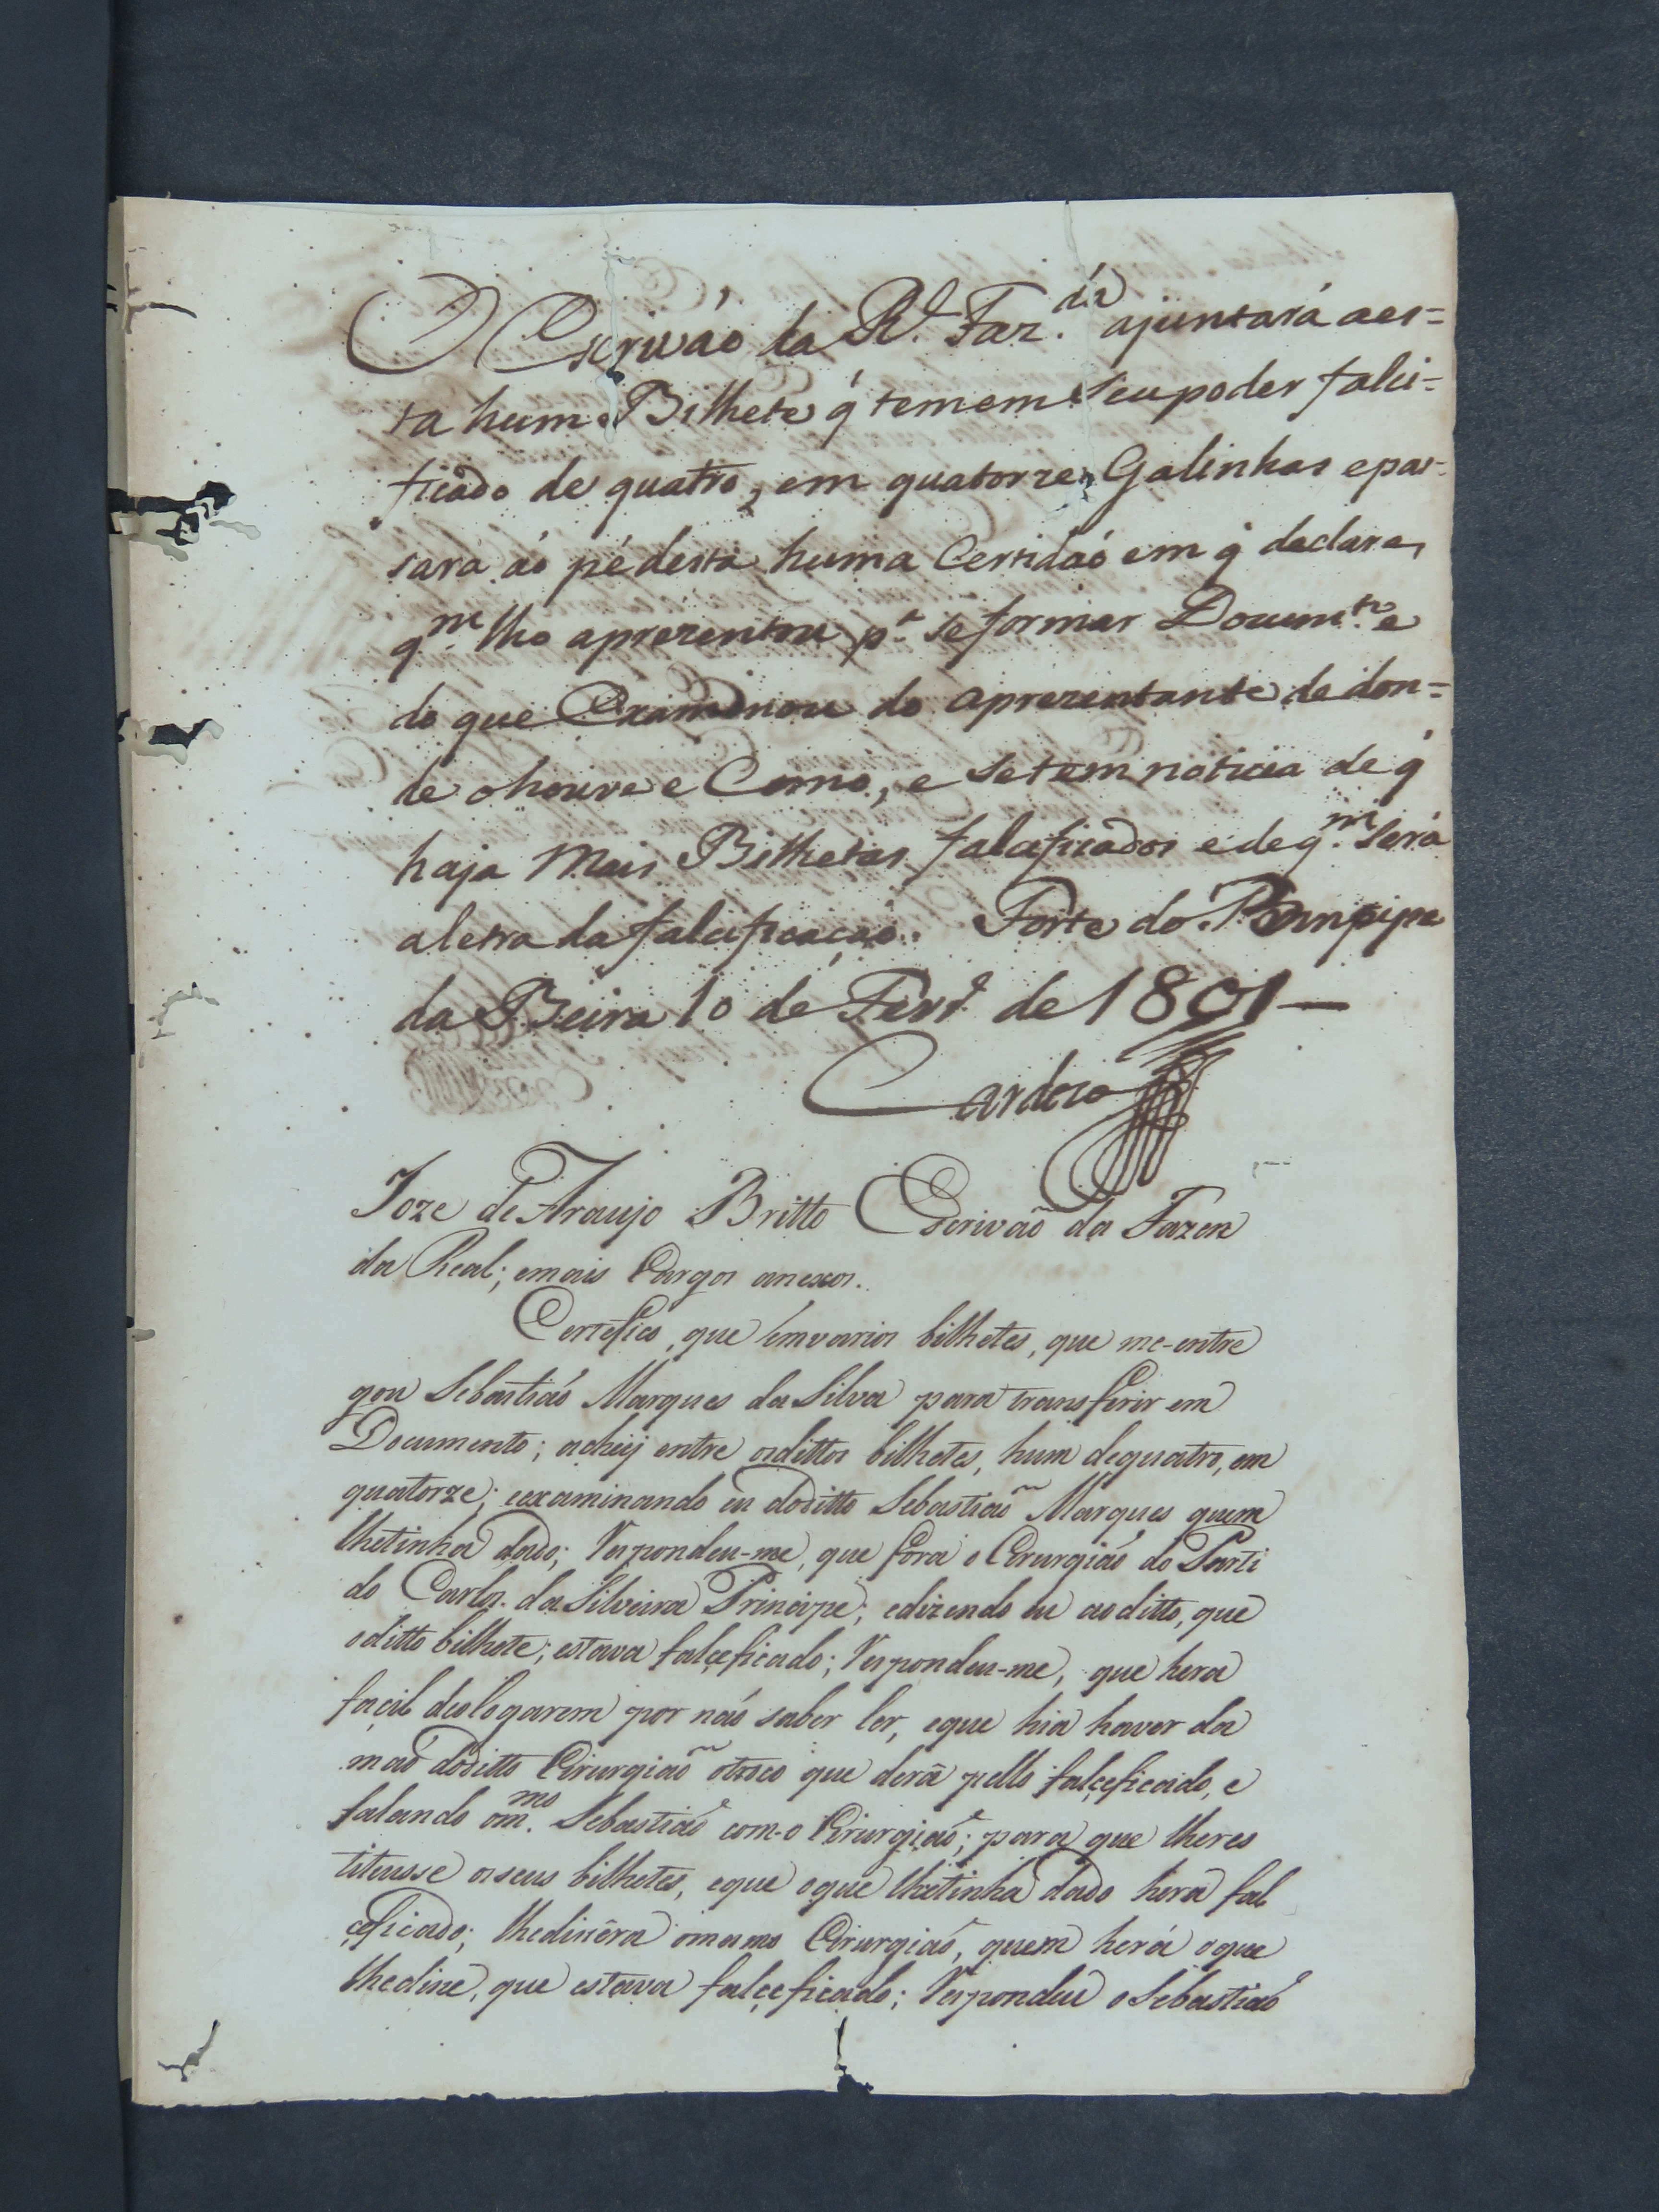 O Escrivaó da R.l Faz.da ajuntará aes=
ta hum Bilhete q̃ temem seupoder falci=
ficado de quatro, em quatorze Galinhas epas=
sará ao pé desta huma Certidaó em q̃ declare,
q.m lho aprezentou p.a se formar Docum.to e
do que Examinou do aprezentante de don=
de ohouve e Como, e setem noticia de q̃
haja Mais Bilhetes falcificados e de q.m será
aletra da falcificaçaó. Forte do Prinçipe
da Beira 10 de Fevr.o de 1801—
Cardozo
Joze de Araujo Britto Escrivaõ da Fazen
da Real; emais Cargos anexos.
Certefico, que emvarios bilhetes, que me-entre
gou Sebastiaó Marques da Silva para transferir em
Documento; achey entre osdittos bilhetes, hum dequatro, em
quatorze; eexaminando eu doditto Sebastiaõ Marques quem
lhetinha dado; Respondeu-me, que fora o Cirurgiaó do Parti
do Carlos da Silveira Principe; edizendo eu aoditto, que
oditto bilhete; estava falçeficado; Respondeu-me, que hera
façil deologarem por naó saber ler, eque hia haver da
maó doditto Cirurgiaõ otroco que derã pello falçeficado, e
falando om.mo Sebastiaó com-o Cirurgiaó; para que lheres
tituisse osseus bilhetes, eque oque lhetinha dado hera fal
çeficado; lhedissera omesmo Cirurgiaó, quem herá oque
lhedisse, que estava falçeficado; Respondeu oSebastiaó